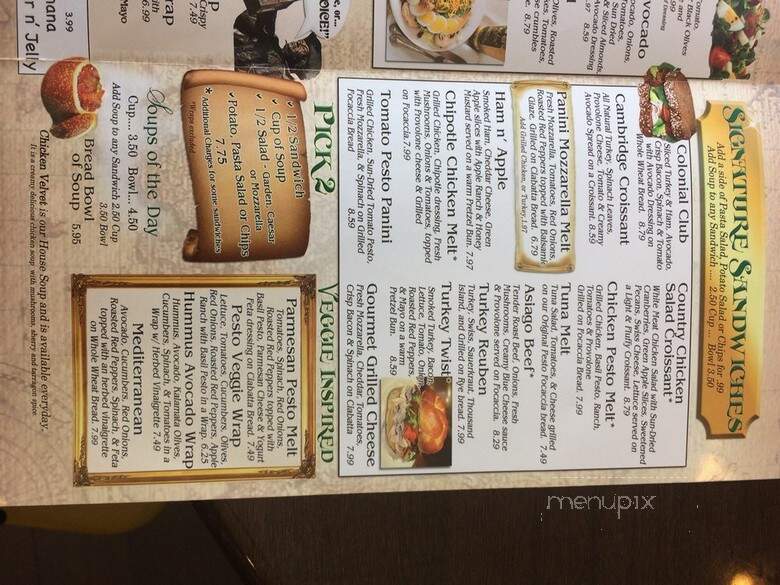 SIGNATURE SANDWICHES
Add a side of Pasta Salad, Potato Salad or Chips for .99
Add Soup to any Sandwich .... 2.50 Cup ... Bowl 3.50
Colonial Club
Sliced Turkey & Ham, Avocado,
Crisp Bacon, Spinach & Tomato
with Avocado Dressing on
Whole Wheat Bread. 8.79
Cambridge Croissant
All Natural Turkey, Spinach Leaves,
Provolone Cheese, Tomato & Creamy
Avocado Spread on a Croissant. 8.59
Panini Mozzarella Melt
Fresh Mozzarella, Tomatoes, Red Onions,
Roasted Red Peppers topped with Balsamic
Glaze, Grilled on Ciabatta Bread. 6.79
Add Grilled Chicken, or Turkey.1.97
Ham n' Apple
Smoked Ham, Cheddar Cheese, Green
Apple slices with Apple Ranch & Honey
Mustard served on a warm Pretzel Bun. 7.97
Chipotle Chicken Melt*
Grilled Chicken, Chipotle dressing, Fresh
Mushrooms, Onions & Tomatoes, topped
with Provolone cheese & Grilled
on Focaccia.7.99
Tomato Pesto Panini
Grilled Chicken, Sun-Dried Tomato Pesto,
Fresh Mozzarella, & Spinach on Grilled
Focaccia Bread. 8.59
Country Chicken
Salad Croissant*
White Meat Chicken Salad with Sun-Dried
Cranberries, Green Apple Slices, Sweetened
Pecans, Swiss Cheese, Lettuce served on
a Light & Fluffy Croissant. 8.79
Chicken Pesto Melt*
Grilled Chicken, Basil Pesto, Ranch,
Tomatoes & Provolone
Grilled on Focaccia Bread. 7.99
Tuna Melt
Tuna Salad, Tomatoes, & Cheese grilled
on our Original Pesto Focaccia Bread. 7.49
Asiago Beef*
Tender Roast Beef, Onions, Fresh
Mushrooms, Creamy Blue Cheese sauce
& Provolone served on Focaccia. 8.29
Turkey Reuben
Turkey, Swiss, Sauerkraut, Thousand
Island, and Grilled on Rye bread. 7.99
Turkey Twist*
Smoked Turkey, Bacon,
Lettuce, Tomato, Onions,
Roasted Red Peppers,
& Mayo on a warm
Pretzel Bun. 8.59
Gourmet Grilled Cheese
Fresh Mozzarella, Cheddar, Tomatoes,
Crisp Bacon & Spinach on Ciabatta 7.99
PICK 2
✓ 1/2 Sandwich
✓ Cup of Soup
✓ 1/2 Salad - Garden, Caesar,
or Mozzarella
✓ Potato, Pasta Salad or Chips
7.75
★Additional Charges for some sandwiches
*Wraps excluded
Soups of the Day
Cup.... 3.50 Bowl... 4.50
Add Soup to any Sandwich 2.50 Cup
3.50 Bowl
Bread Bowl
of Soup 5.95
VEGGIE INSPIRED
Parmesan Pesto Melt
Tomatoes, Spinach, Red Onions,
Roasted Red Peppers topped with
Basil Pesto, Parmesan Cheese & Yogurt
Feta dressing on Ciabatta Bread. 7.49
Pesto Veggie Wrap
Lettuce, Tomatoes, Cucumbers, Olives,
Red Onions, Roasted Red Peppers, Apple
Ranch with Basil Pesto in a Wrap. 6.25
Hummus Avocado Wrap
Hummus, Avocado, Kalamata Olives,
Cucumbers, Spinach, & Tomatoes in a
Wrap w/ Herbed Vinaigrette 7.49
Mediterranean
Avocado, Cucumbers, Red Onions,
Roasted Red Peppers, Spinach, & Feta
topped with an herbed vinaigrette
on Whole Wheat Bread. 7.99
Chicken Velvet is our House Soup and is available everyday.
It is a creamy delicious chicken soup, with mushrooms, sherry and tarragon spice
menupix